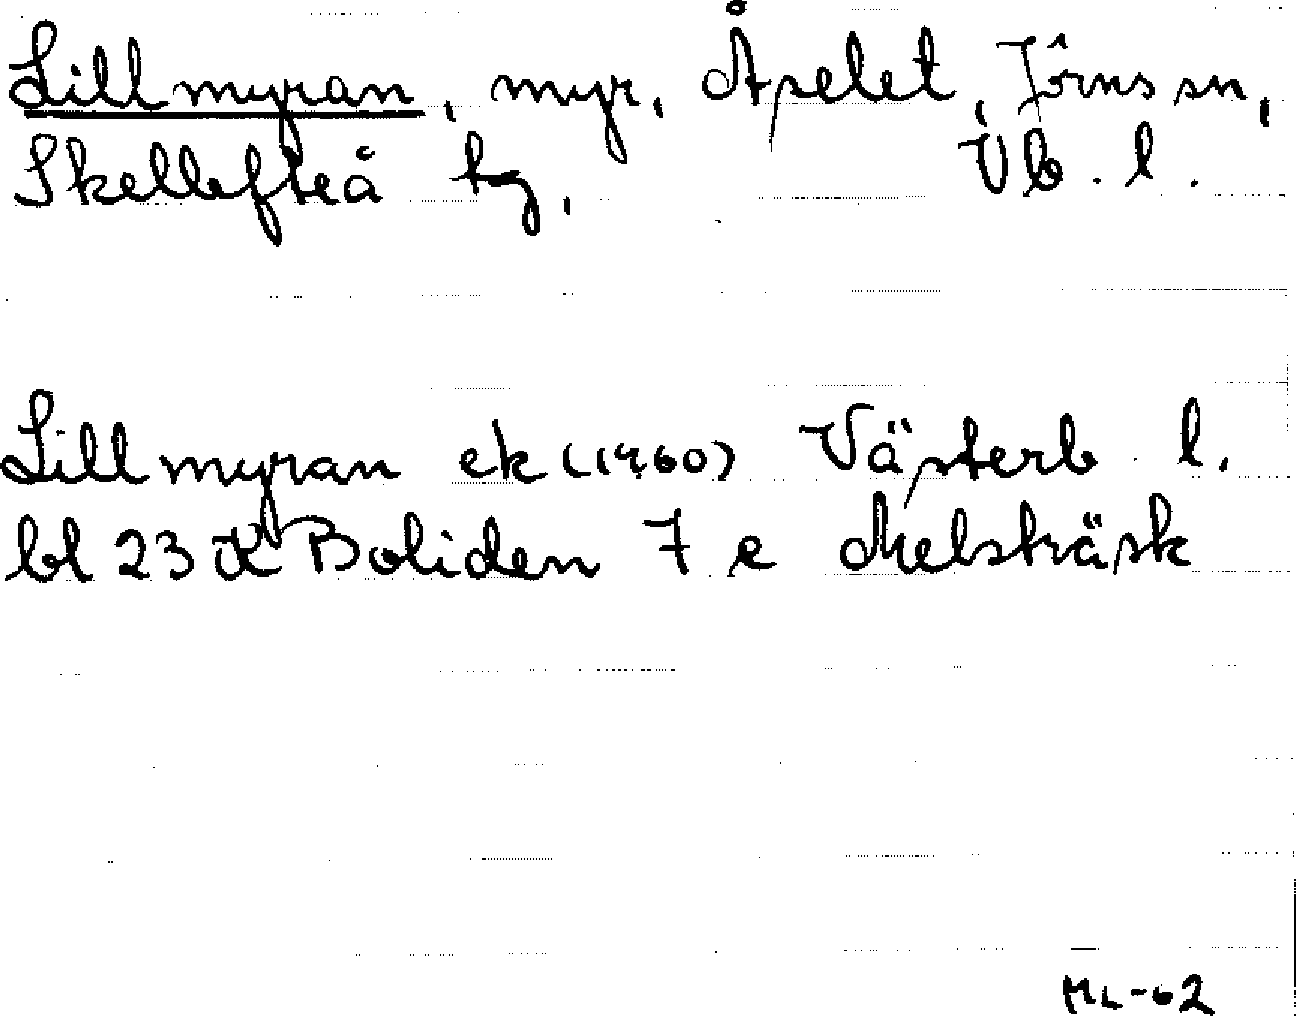 Lillmyran, myr, Åselet, Jörns sn,
Skellefteå tg, Vb. l.
Lillmyran ek (1960) Västerb l.
bl 23 K Boliden 7 e Melsträsk
ML-62